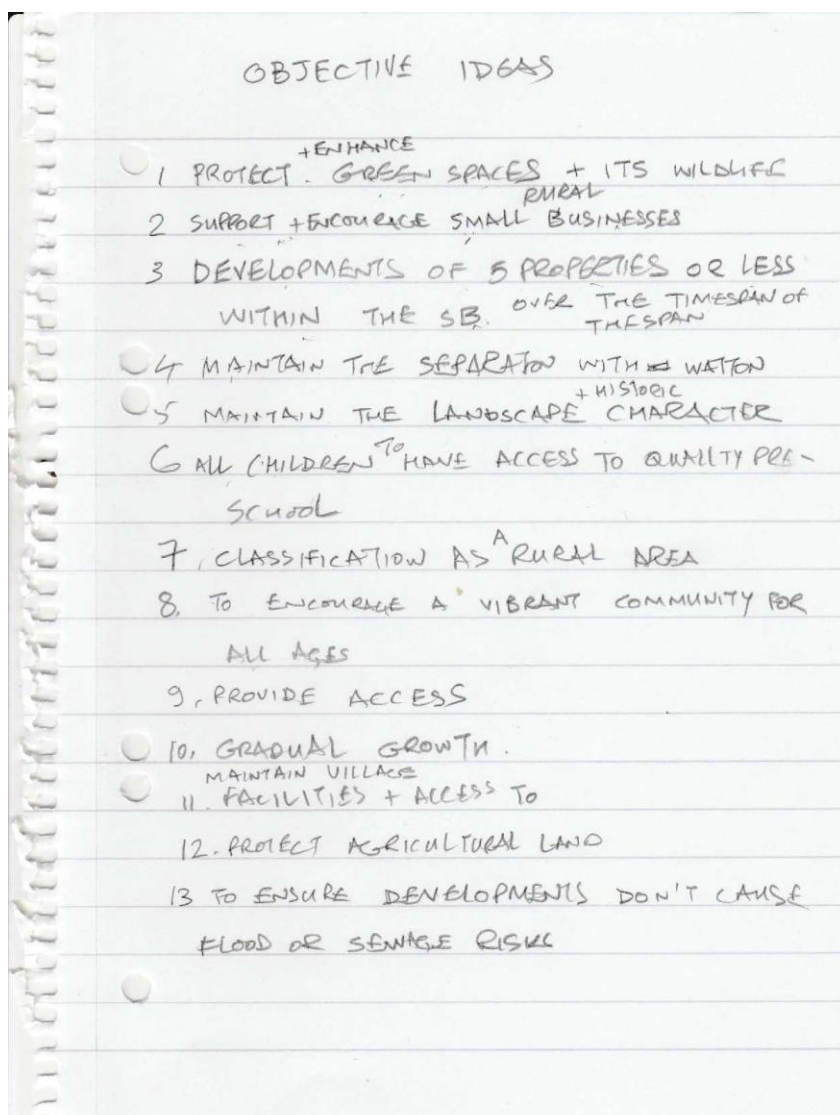 OBJECTIVE IDEAS
+ ENHANCE
1 PROTECT. GREEN SPACES + ITS WILDLIFE
RURAL
2 SUPPORT + ENCOURAGE SMALL BUSINESSES
3 DEVELOPMENTS OF 5 PROPERTIES OR LESS
WITHIN THE SB. OVER THE TIMESPAN OF
THESPAN
4 MAINTAIN THE SEPARATON WITH WATTON
+ HISTORIC
5 MAINTAIN THE LANDSCAPE CHARACTER
6 ALL CHILDREN TO HAVE ACCESS TO QUALITY PRE-
SCHOOL
7, CLASSIFICATION AS A RURAL AREA
8, TO ENCOURAGE A VIBRANT COMMUNITY FOR
ALL AGES
9, PROVIDE ACCESS
10, GRADUAL GROWTH.
MAINTAIN VILLAGE
11. FACILITIES + ACCESS TO
12. PROTECT AGRICULTURAL LAND
13 TO ENSURE DEVELOPMENTS DON'T CAUSE
FLOOD OR SEWAGE RISKS